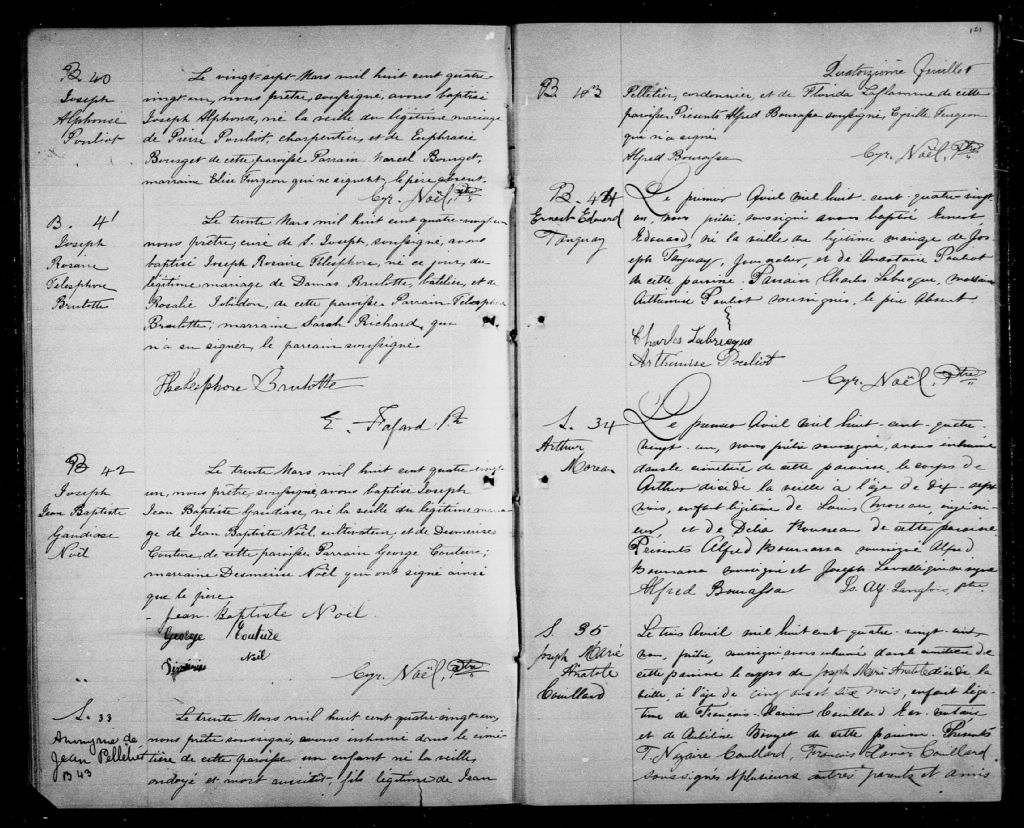 B 40
Joseph
Alphonse
Pouliot
Le vingt-sept Mars mil huit cent quatre-
vingt-un, nous prêtre, soussigné, avons baptisé
Joseph Alphonse, né la veille du légitime mariage
de Pierre Pouliot, charpentier, et de Euphrasie
Bourget de cette paroisse Parrain Marcel Bourget,
marraine Elise Turgeon qui ne signent, le père absent.
Cyr. Noël, Ptre
B. 41
Joseph
Rosaire
Telesphore
Brulotte
Le trente Mars mil huit cent quatre-vingt-un
nous prêtre, curé de S. Joseph, soussigné, avons
baptisé Joseph Rosaire Télesphore, né ce jour, du
légitime mariage de Damas Brulotte, batelier, et de
Rosalie Jolidon, de cette paroisse Parrain Telesphore
Brulotte; marraine Sarah Richard, qui
n'a su signer, le parrain soussigné.
Thelesphore Brulotte
E. Fafard Pt
B 42
Joseph
Jean Baptiste
Gaudiose
Noël
Le trente Mars mil huit cent quatre-vingt-
un, nous, prêtre, soussigné, avons baptisé Joseph
Jean Baptiste Gaudiose, né la veille du légitime maria-
ge de Jean Baptiste Noël cultivateur, et de Desmerises
Couture, de cette paroisse Parrain George Couture;
marraine Desmerise Noël qui ont signé ainsi
que le père.
Jean-Baptiste Noël
George Couture
Noël
Cyr. Noël, Ptre
S. 33
Anonyme de
Jean Pelletier
B 43
Le trente Mars mil huit cent quatre-vingt-un,
nous prêtre soussigné, avons inhumé dans le cime-
tière de cette paroisse un enfant né la veille,
ondoyé et mort aussitôt, fils légitime de Jean
121
Quatorzième feuillet
B 43
Pelletier, cordonnier, et de Florida Laflamme de cette
paroisse. Présents Alfred Bourassa soussigné, Cyrille Turgeon
qui n'a signé.
Alfred Bourassa
Cyr. Noël, Ptre
B. 44
Ernest Edouard
Tanguay
Le premier Avril mil huit-cent quatre-vingt
un, nous prêtre soussigné avons baptisé Ernest
Edouard, né la veille du légitime mariage de Jos-
eph Tanguay, journalier, et de Anastasie Pouliot
de cette paroisse. Parrain Charles Labrecque, marraine
Arthemise Pouliot soussignés, le père absent
Charles Labrecque
Arthemise Pouliot
Cyr. Noël, Ptre
S. 34
Arthur
Moreau
Le premier Avril mil huit-cent-quatre-
vingt-un, nous prêtre soussigné, avons inhumé
dans le cimetière de cette paroisse, le corps de
Arthur décédé la veille à l'âge de dix-sept
mois, enfant légitime de Louis Moreau, ingéni-
eur, et de Delia Rousseau de cette paroisse
Présents Alfred Bourrassa soussigné Alfred
Bourassa soussigné et Joseph Lavallé qui ne signe
Alfred Bourassa Ls. Alf. Langlois, ptre
S. 35
Joseph Marie
Anatole
Couillard
Le trois Avril mil huit cent quatre-vingt-un,
nous, prêtre, soussigné avons inhumé dans le cimetière de
cette paroisse le corps de Joseph Marie Anatole décédé la
veille, à l'âge de cinq ans et six mois, enfant légi-
time de François-Xavier Couillard Ecr. notaire
et de Bourget de cette paroisse. Présents
T. Nazaire Couillard, Francois Xavier Couillard
soussignés et plusieurs autres parents et amis